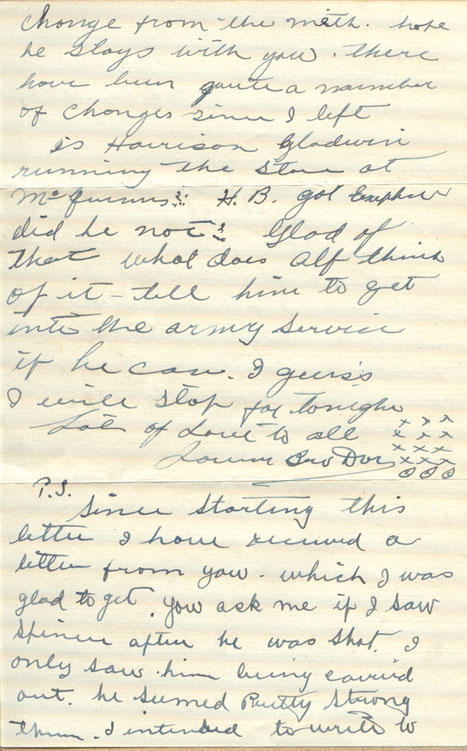 change from the meth. hope
he stays with you. there
have been quite a number
of changes since I left
is Harrison Gladwin
running the store at
H.B. got
did he not? Glad of
that what does Alf think
of it - tell him to get
into the army service
if he can. I guess
I will stop for tonight
Lot of Love to all x x x
x x x
x x x
Bro x x x
O O O
P.S.
Since starting this
letter I have received a
letter from you. which I was
glad to get. you ask me if I saw
after he was shot. I
only saw him being carried
out. he seemed Pretty strong
then. I intended to write to